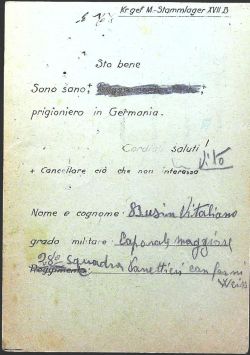 Krgef M.-Stammlager XVII B
Sto bene
Sono sano +
prigioniero in Germania.
Cordiali saluti!
Vito
+ Cancellare ciò che non interessa
Nome e cognome: Busin Vitaliano
grado militare: Caporale maggiore
28º squadra Panettieri con forni
Reggimento:
Weiss